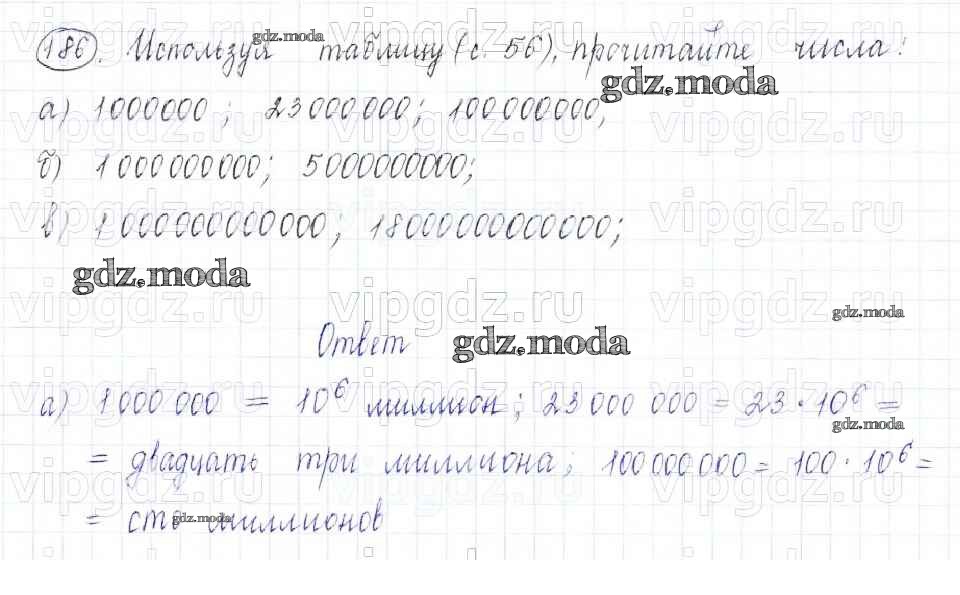 186. Используя таблицу (с. 56), прочитайте числа:
gdz.moda
gdz.moda
а) 1000000; 23000000; 100000000;
б) 1000000000; 5000000000;
в) 1000000000000; 18000000000000;
gdz.moda
gdz.moda
Ответ
gdz.moda
а) 1000 000 = 10⁶ миллион; 23000 000 = 23 · 10⁶ =
gdz.moda
= двадцать три миллиона; 100000000 = 100 · 10⁶ =
= сто миллионов
gdz.moda
vipgdz.ru